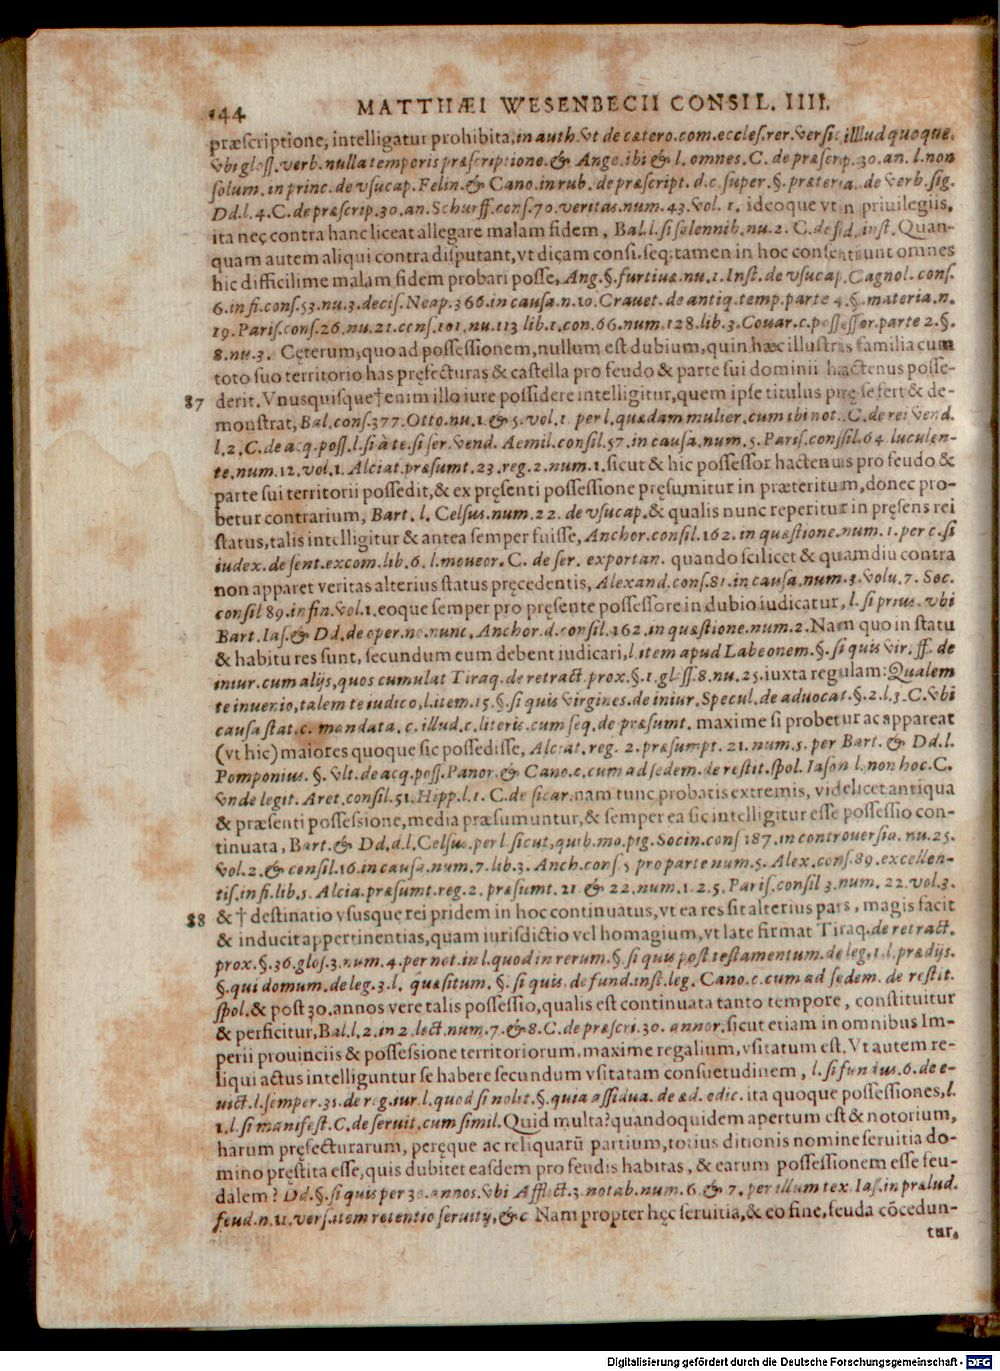 144 MATTHÆI WESENBECII CONSIL. IIII.
præscriptione, intelligatur prohibita, in auth. vt de cætero. com. eccles. rer. versic. illud quoque.
vbi gloss. verb. nulla temporis præscriptione. & Ange. ibi & l. omnes. C. de præscrip. 30. an. l. non
solum. in princ. de vsucap. Felin. & Cano. in rub. de præscript. d. c. super. §. præteria. de verb. sig.
Dd. l. 4. C. de præscrip. 30. an. Schurff. cons. 70. veritas. num. 43. vol. 1. ideoque vt in priuilegiis,
ita nec contra hanc liceat allegare malam fidem, Bal. l. si solennib. nu. 2. C. de fid. inst. Quan-
quam autem aliqui contra disputant, vt dicam consi. seq. tamen in hoc consentiunt omnes
hic difficilime malam fidem probari posse, Ang. §. furtiuæ. nu. 1. Inst. de vsucap. Cagnol. cons.
6. in fi. cons. 53. nu. 3. decis. Neap. 366. in causa. n. 10. Crauet. de antiq. temp. parte 4. §. materia. n.
19. Paris. cons. 26. nu. 21. cons. 101. nu. 113 lib. 1. con. 66. num. 128. lib. 3. Couar. c. possessor. parte 2. §.
8. nu. 3. Cęterum, quo ad possessionem, nullum est dubium, quin hæc illustris familia cum
toto suo territorio has pręfecturas & castella pro feudo & parte sui dominii hactenus posse-
87 derit. Vnusquisque† enim illo iure possidere intelligitur, quem ipse titulus prę se fert & de-
monstrat, Bal. cons. 377. Otto. nu. 1. & 5. vol. 1. per l. quædam mulier. cum ibi not. C. de rei vend.
l. 2. C. de acq. poss. l. si à te. si ser. vend. Aemil. consil. 57. in causa. num. 5. Paris. consil. 64. luculen-
te. num. 12. vol. 1. Alciat. præsumt. 23. reg. 2. num. 1. sicut & hic possessor hactenus pro feudo &
parte sui territorii possedit, & ex pręsenti possessione pręsumitur in præteritum, donec pro-
betur contrarium, Bart. l. Celsus. num. 22. de vsucap. & qualis nunc reperitur in pręsens rei
status, talis intelligitur & antea semper fuisse, Anchor. consil. 162. in quæstione. num. 1. per c. si
iudex. de sent. excom. lib. 6. l. moueor. C. de ser. exportan. quando scilicet & quamdiu contra
non apparet veritas alterius status pręcedentis, Alexand. cons. 81. in causa. num. 3. volu. 7. Soc.
consil 89. in fin. vol. 1. eoque semper pro pręsente possessore in dubio iudicatur, l. si prius. vbi
Bart. Ias. & Dd. de oper. no. nunc. Anchor. d. consil. 162. in quæstione. num. 2. Nam quo in statu
& habitu res sunt, secundum eum debent iudicari, l. item apud Labeonem. §. si quis vir. ff. de
iniur. cum alijs, quos cumulat Tiraq. de retract. prox. §. 1. gloss. 8. nu. 25. iuxta regulam: Qualem
te inuenio, talem te iudico, l. item. 15. §. si quis virgines. de iniur. Specul. de aduocat. §. 2. l. 3. C. vbi
causa stat. c. mandata. c. illud. c. literis. cum seq. de præsumt. maxime si probetur ac appareat
(vt hic) maiores quoque sic possedisse, Alciat. reg. 2. præsumpt. 21. num. 5. per Bart. & Dd. l.
Pomponius. §. vlt. de acq. poss. Panor. & Cano. c. cum ad sedem. de restit. spol. Iason l. non hoc. C.
vnde legit. Aret. consil. 51. Hipp. l. 1. C. de sicar. nam tunc probatis extremis, videlicet antiqua
& præsenti possessione, media præsumuntur, & semper ea sic intelligitur esse possessio con-
tinuata, Bart. & Dd. d. l. Celsus. per l. sicut, quib. mo. pig. Socin. cons 187. in controuersia. nu. 25.
vol. 2. & consil. 16. in causa. num. 7. lib. 3. Anch. cons. 5 pro parte num. 5. Alex. cons. 89. excellen-
tis. in fi. lib. 5. Alcia. præsumt. reg. 2. præsumt. 21 & 22. num. 1. 2. 5. Paris. consil 3. num. 22. vol. 3.
88 & † destinatio vsusque rei pridem in hoc continuatus, vt ea res sit alterius pars, magis facit
& inducit appertinentias, quam iurisdictio vel homagium, vt late firmat Tiraq. de retract.
prox. §. 36. glos. 3. num. 4. per not. in l. quod in rerum. §. si quis post testamentum. de leg. 1. l. prædijs.
§. qui domum. de leg. 3. l. quæsitum. §. si quis. de fund. inst. leg. Cano. c. cum ad sedem. de restit.
spol. & post 30. annos vere talis possessio, qualis est continuata tanto tempore, constituitur
& perficitur, Bal. l. 2. in 2. lect. num. 7. & 8. C. de præscri. 30. annor. sicut etiam in omnibus Im-
perii prouinciis & possessione territoriorum, maxime regalium, vsitatum est. Vt autem re-
liqui actus intelliguntur se habere secundum vsitatam consuetudinem, l. si fundus. 6. de e-
uict. l. semper. 31. de reg. iur. l. quod si nolit. §. quia assidua. de æd. edic. ita quoque possessiones, l.
1. l. si manifest. C. de seruit. cum simil. Quid multa? quandoquidem apertum est & notorium,
harum pręfecturarum, peręque ac reliquarū partium, totius ditionis nomine seruitia do-
mino pręstita esse, quis dubitet easdem pro feudis habitas, & earum possessionem esse feu-
dalem? Dd. §. si quis per 30. annos. vbi Afflict. 3. notab. num. 6. & 7. per illum tex. Ias. in prælud.
feud. n. 11. vers. item retentio seruitij, &c Nam propter hęc seruitia, & eo fine, feuda cōcedun-
tur,
Digitalisierung gefördert durch die Deutsche Forschungsgemeinschaft - DFG